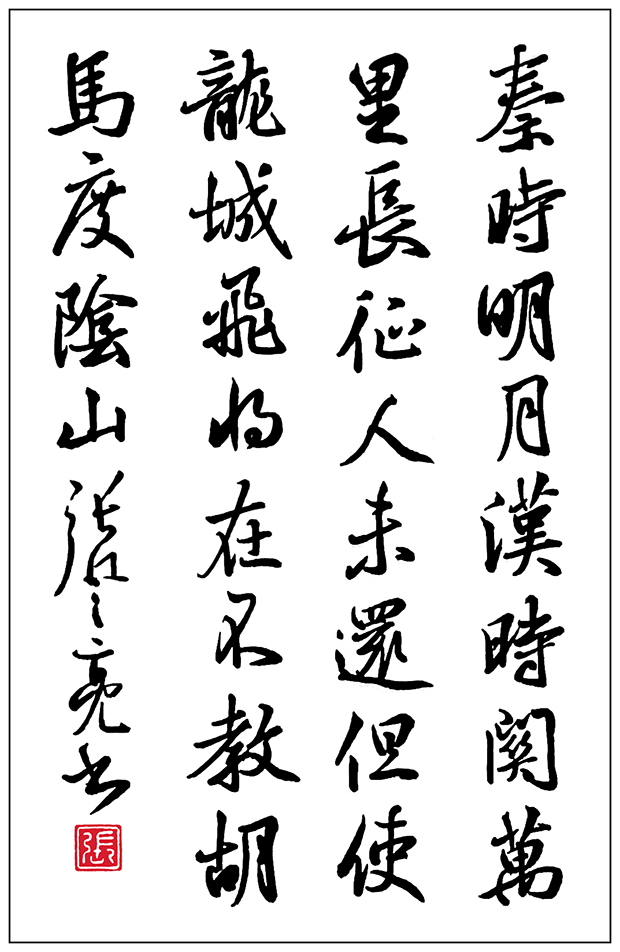 秦時明月漢時関萬
里長征人未還但使
龍城飛将在不教胡
馬度陰山 張 亮书
張